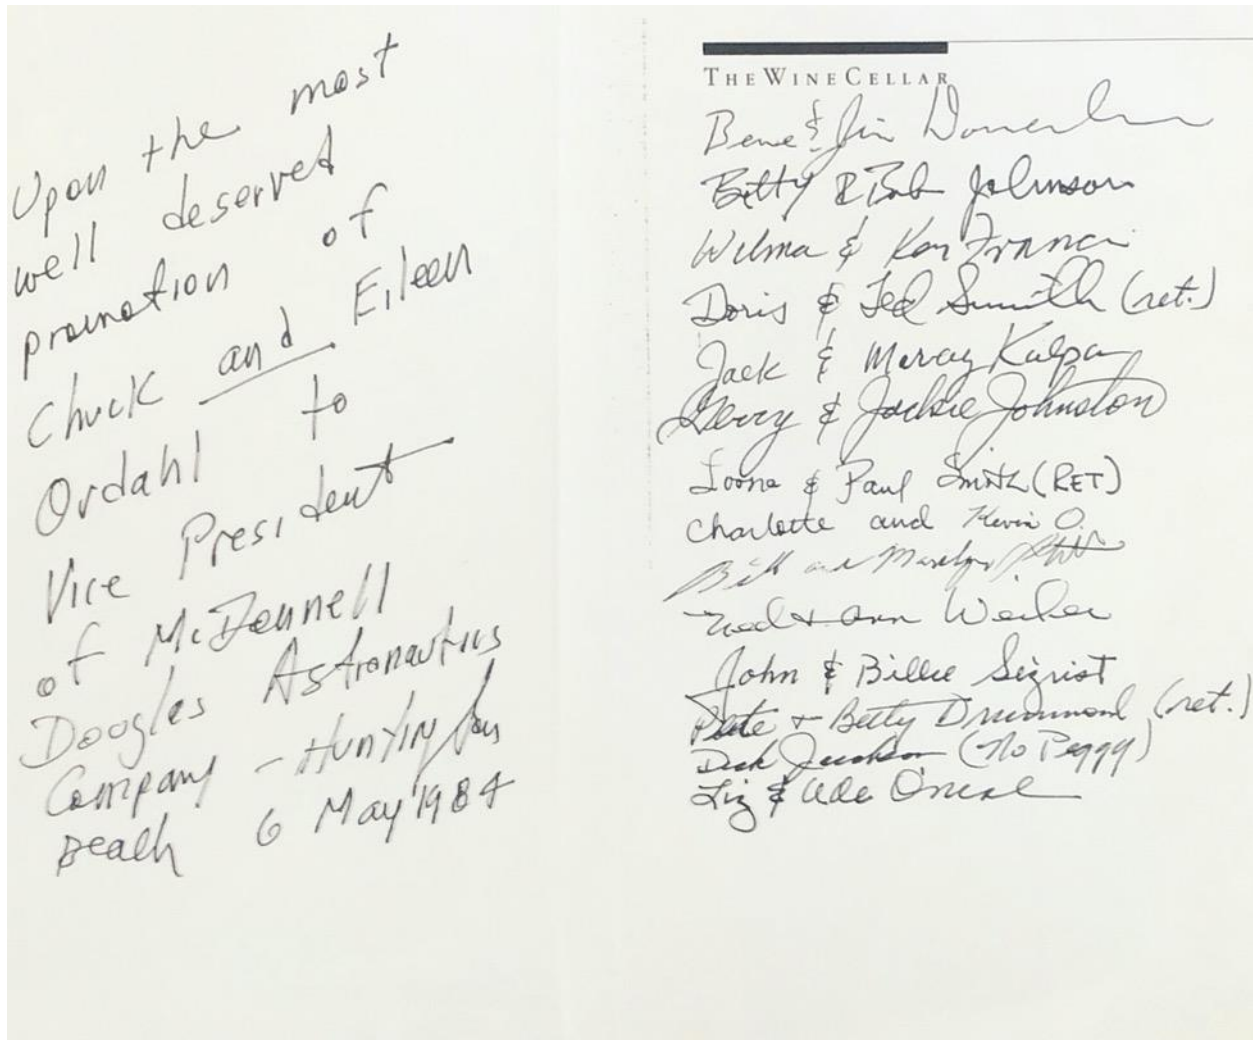 Upon the most
well deserved
promotion of
Chuck and Eileen
Ordahl to
Vice President
of McDonnell
Douglas Astronautics
Company - Huntington
Beach 6 May 1984
THE WINE CELLAR
& Jim
Betty & Bob Johnson
Wilma & Francis
Doris & Ted Smith (ret.)
Jack &
Gerry & Jackie Johnston
& Paul Smith (RET)
Charlotte and Kevin O.
Bill and Marilyn
Ann
John & Billie Sigrist
Pete + Betty Drummond (ret.)
Dick Jackson (No Peggy)
Liz & O'Neal